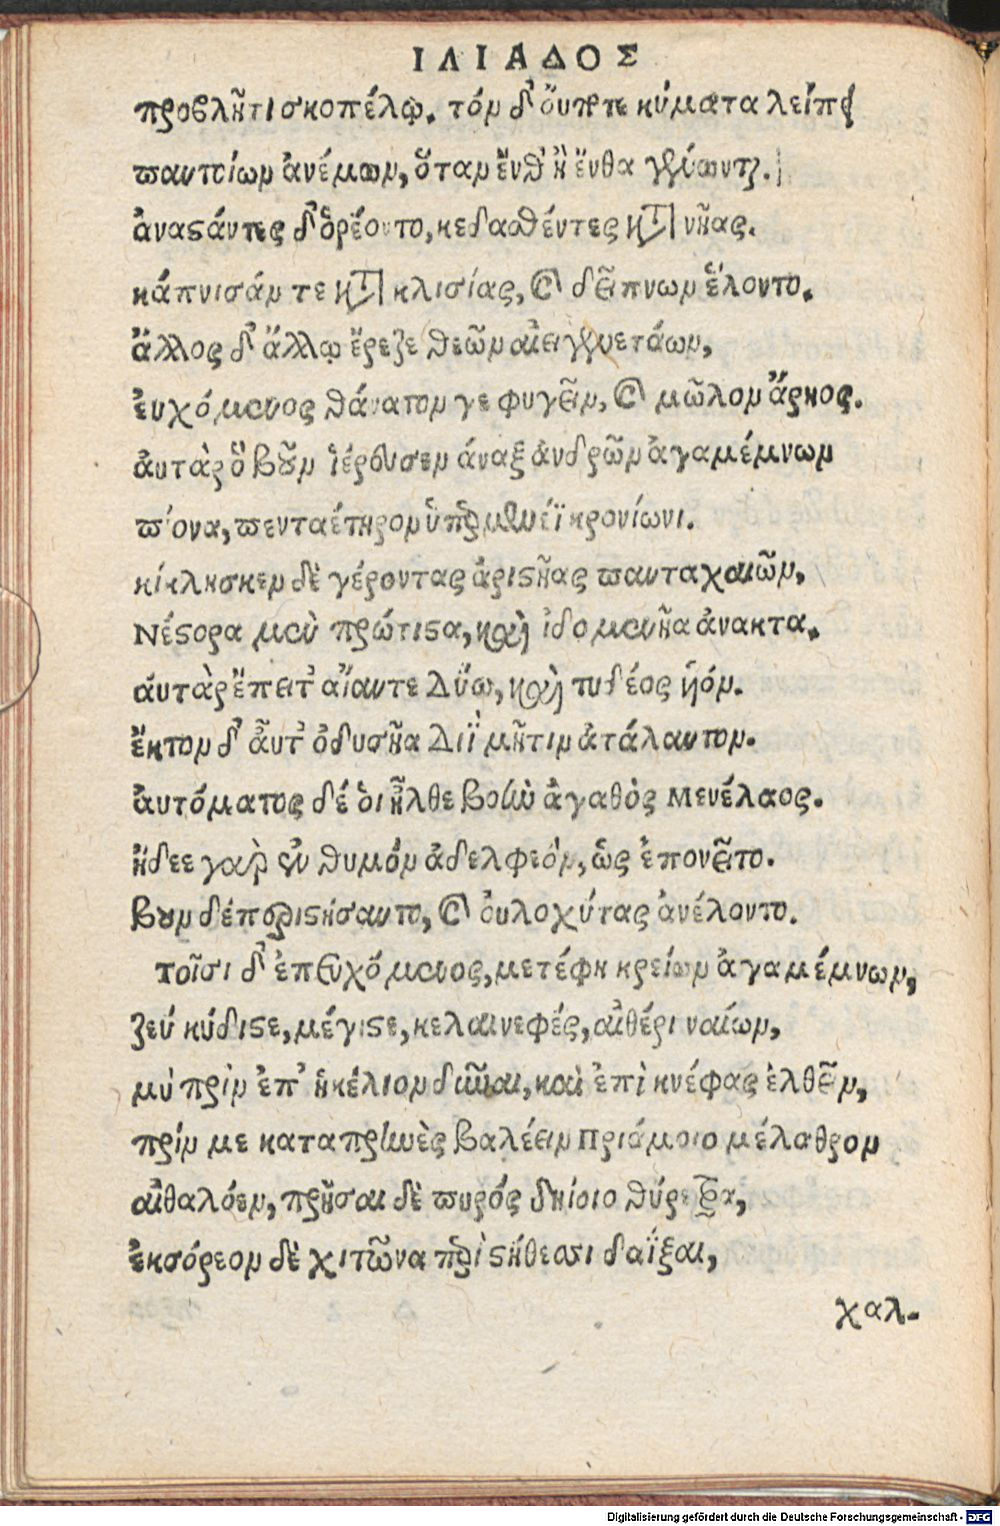 ΙΛΙΑΔΟΣ
προβλῆτι σκοπέλῳ. τὸν δ' ὄυποτε κύματα λείπει
παντοίων ἀνέμων, ὅταν ἔνθ' ἢ ἔνθα γένωντ).
ἀναστάντες δ' ὀρέοντο, κεδασθέντες κτ νῆας.
κάπνισάν τε κτ κλισίας, καὶ δεῖπνων ἕλοντο.
ἄλλος δ' ἄλλῳ ἔρεζε θεῶν αἰειγενετάων,
ἐυχόμενος θάνατον γε φυγεῖν, καὶ μῶλον ἄρηος.
ἀυτὰρ ὃ βοῦν ἱέρευσεν ἄναξ ἀνδρῶν ἀγαμέμνων
π'ονα, πενταέτηρον ὑπερμενέϊ κρονίωνι.
κίκλησκεν δὲ γέροντας ἀριστῆας πανταχαιῶν,
Νέστορα μὲν πρώτιστα, καὶ ἰδομενῆα ἄνακτα.
ἀυτὰρ ἔπειτ' αἴαντε Δύω, καὶ τυδέος ἡόν.
ἕκτον δ' ἆυτ' ὀδυσῆα Διῒ μῆτιν ἀτάλαντον.
ἀυτόματος δέ ὁι ἦλθε βοὴν ἀγαθὸς Μενέλαος.
ᾔδεε γὰρ ἐν θυμὸν ἀδελφεόν, ὡς ἐπονεῖτο.
βουν δέ περιστήσαντο, καὶ ὀυλοχύτας ἀνέλοντο.
τοῖσι δ' ἐπευχόμενος, μετέφη κρείων ἀγαμέμνων,
ζεύ κύδιστε, μέγιστε, κελαινεφές, αἰθέρι ναίων,
μὺ πρὶν ἐπ' ἠκέλιον δῦναι, καὶ ἐπὶ κνέφας ἐλθεῖν,
πρίν με καταπρηνὲς βαλέειν Πριάμοιο μέλαθρον
αἰθαλόεν, πρῆσαι δὲ πυρός δηίοιο θύρετρα,
ἐκσόρεον δὲ χιτῶνα περὶ στήθεσσι δαΐξαι,
χαλ-
Digitalisierung gefördert durch die Deutsche Forschungsgemeinschaft - DFG